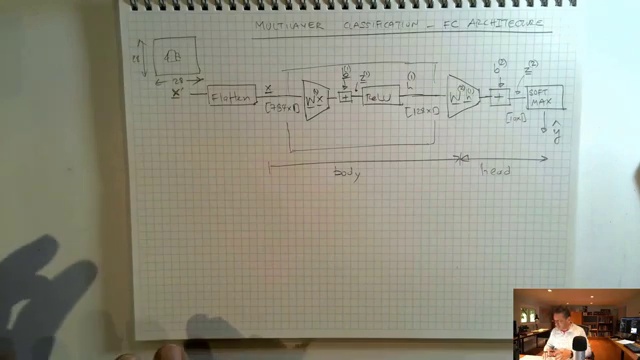 MULTILAYER CLASSIFICATION - FC ARCHITECTURE
28
28
X
Flatten
x
[784x1]
W⁽¹⁾x
b⁽¹⁾
+
z⁽¹⁾
ReLU
h⁽¹⁾
[128x1]
W⁽²⁾h⁽¹⁾
b⁽²⁾
+
z⁽²⁾
[10x1]
SOFT
MAX
ŷ
body
head